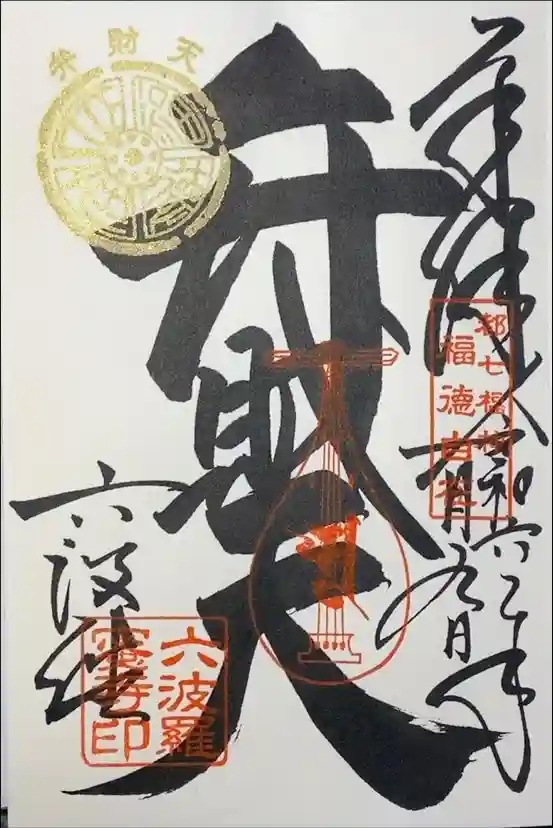 奉拝
令和六年
月九日
都七福神
福徳自在
弁財天
弁財天
六波
六波羅
蜜寺印